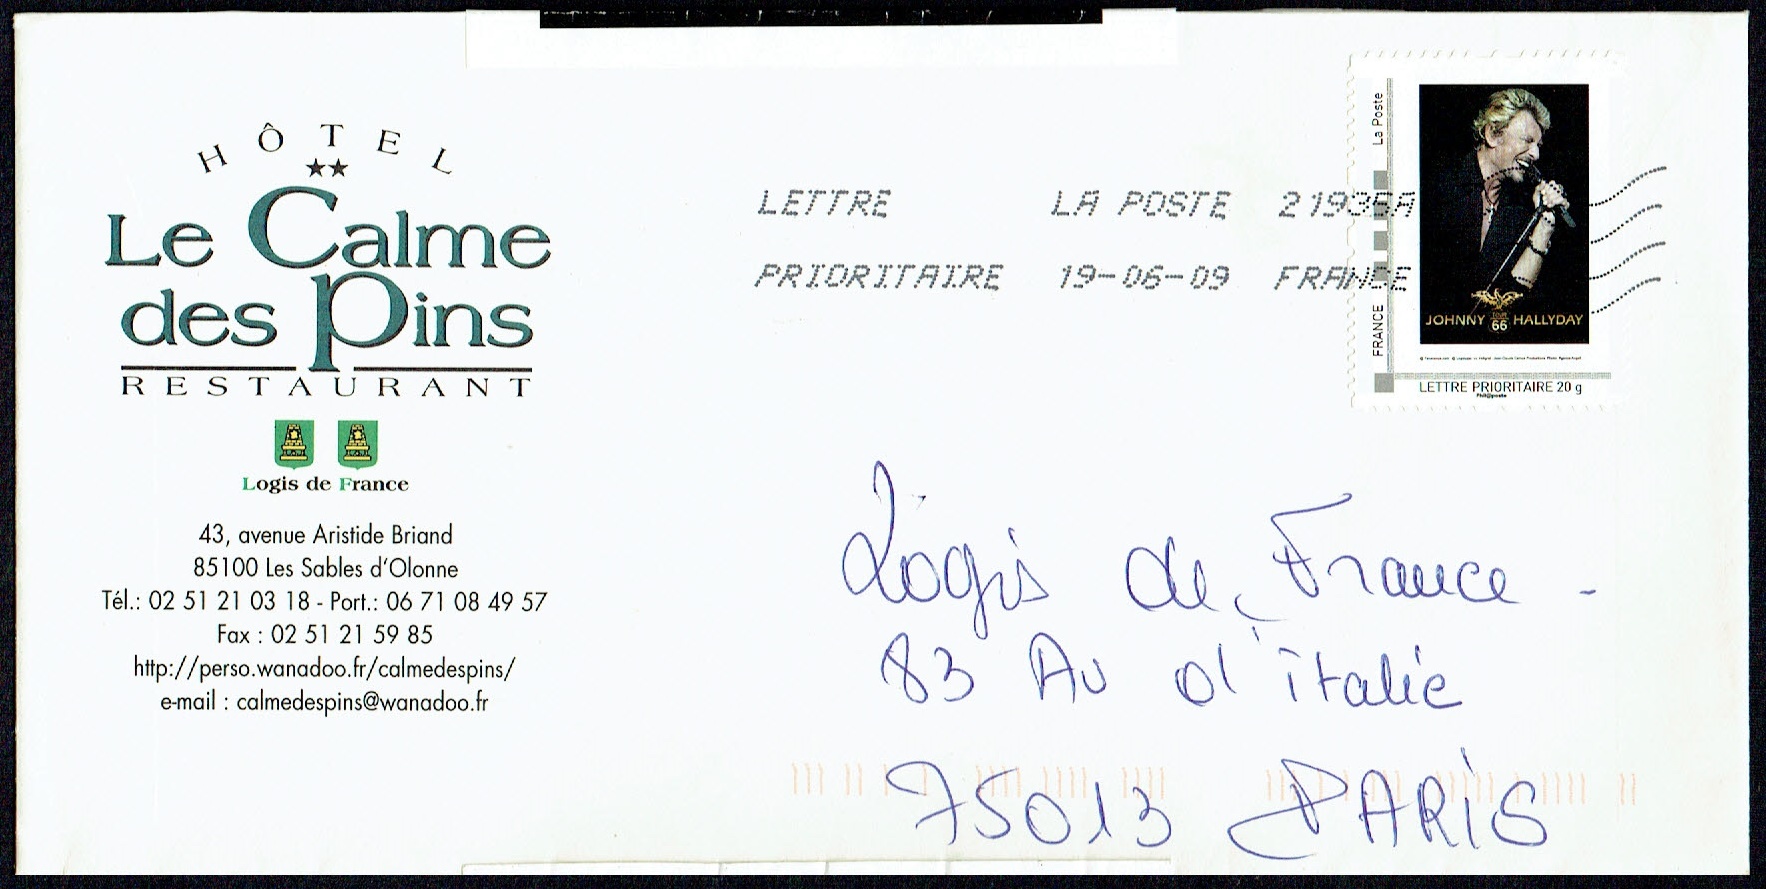 HÔTEL
Le Calme
des Pins
RESTAURANT
Logis de France
43, avenue Aristide Briand
85100 Les Sables d'Olonne
Tél.: 02 51 21 03 18 - Port.: 06 71 08 49 57
Fax : 02 51 21 59 85
http://perso.wanadoo.fr/calmedespins/
e-mail : calmedespins@wanadoo.fr
LETTRE LA POSTE 21936A
PRIORITAIRE 19-06-09 FRANCE
La Poste
FRANCE
TOUR
JOHNNY 66 HALLYDAY
LETTRE PRIORITAIRE 20 g
Phil@poste
Logis de France -
83 Av d'italie
75013 PARIS